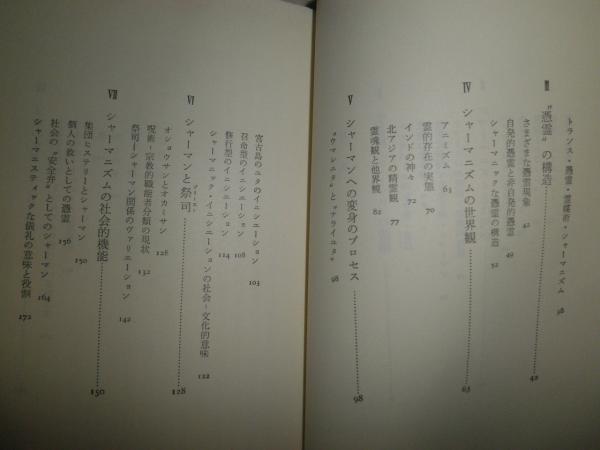 トランス・憑霊・霊媒術・シャーマニズム 38
III “憑霊”の構造 42
さまざまな憑霊現象 42
自発的憑霊と非自発的憑霊 49
シャーマニックな憑霊の構造 52
IV シャーマニズムの世界観 63
アニミズム 63
霊的存在の実態 70
インドの神々 72
北アジアの精霊観 77
霊魂観と他界観 82
V シャーマンへの変身のプロセス 98
“ウマレユタ”と“ナライユタ” 98
宮古島のユタのイニシエーション 103
召命型のイニシエーション 108
修行型のイニシエーション 114
シャーマニック・イニシエーションの社会-文化的意味 122
VI シャーマンと祭司 128
オショウサンとオカミサン 128
呪術-宗教的職能者分類の現状 132
祭司-シャーマン関係のヴァリエーション 142
VII シャーマニズムの社会的機能 150
集団ヒステリーとシャーマン 150
個人の救いとしての憑霊 156
社会の“安全弁”としてのシャーマン 164
シャーマニスティックな儀礼の意味と役割 172